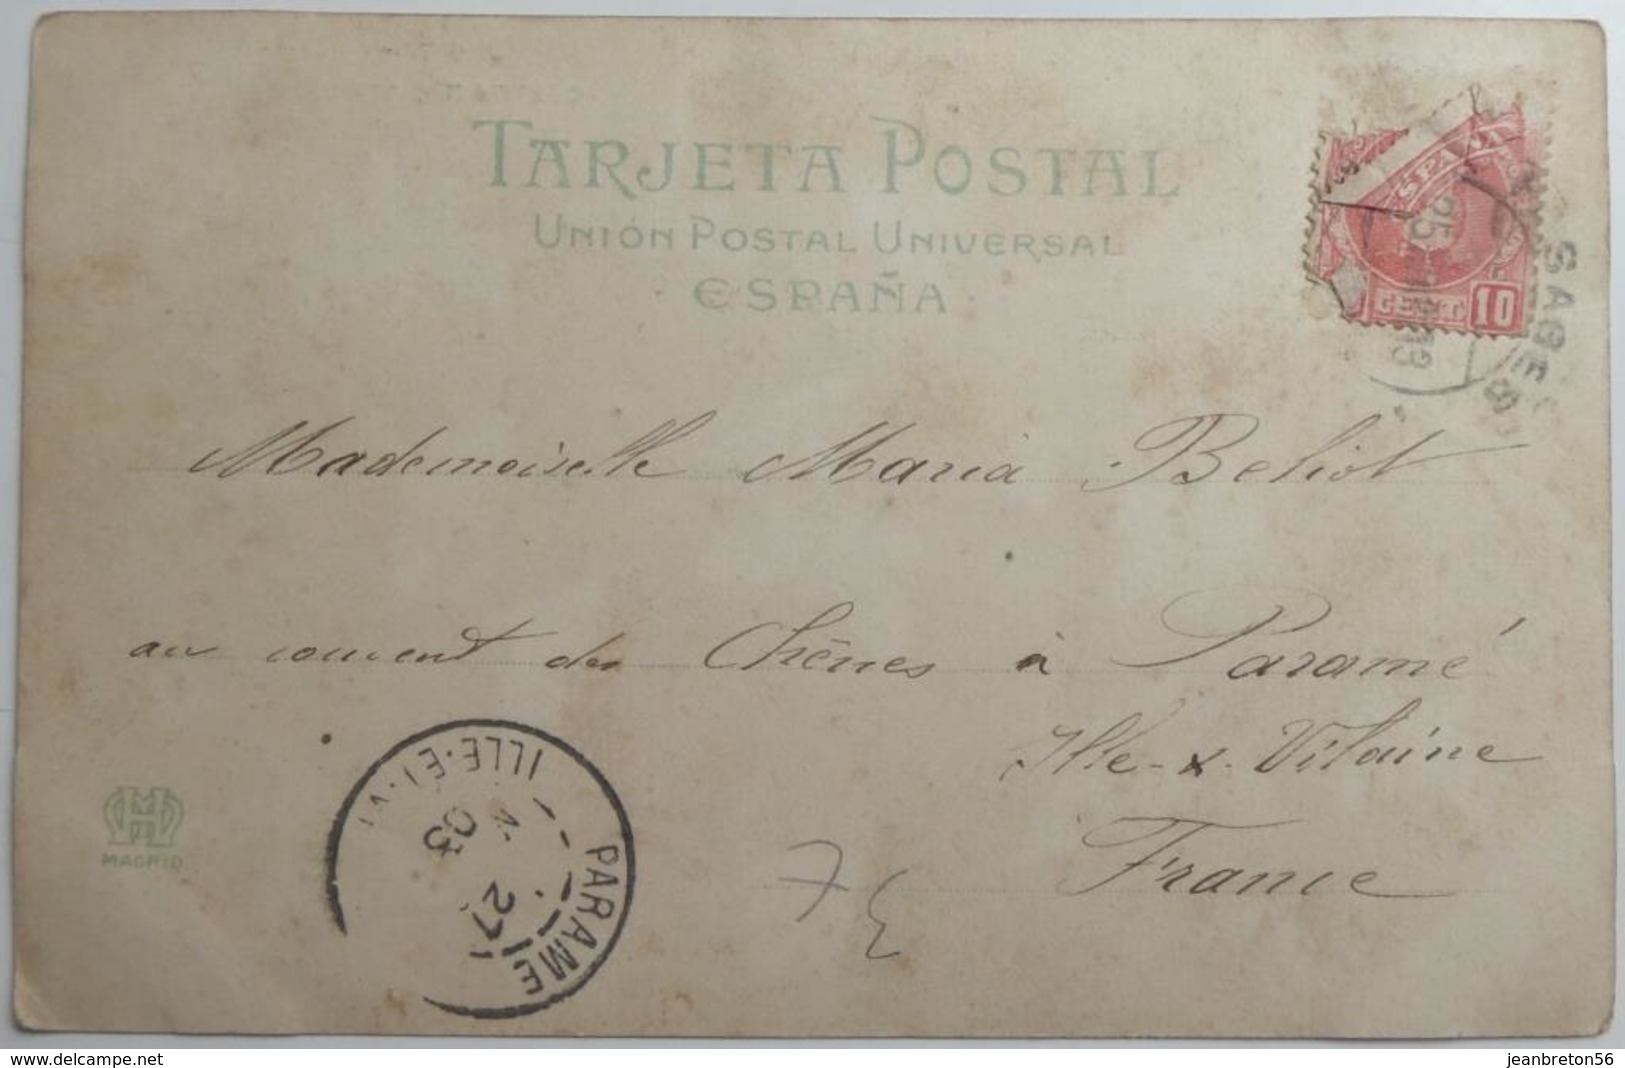 TARJETA POSTAL
UNIÓN POSTAL UNIVERSAL
ESPAÑA
ESPAÑA
CENT. 10
25
Mademoiselle Maria Beliot
au couvent des Chênes à Paramé
Ille-&-Vilaine
France
MADRID
PARAME
ILLE-ET-V
27
03
delcampe.net
jeanbreton56